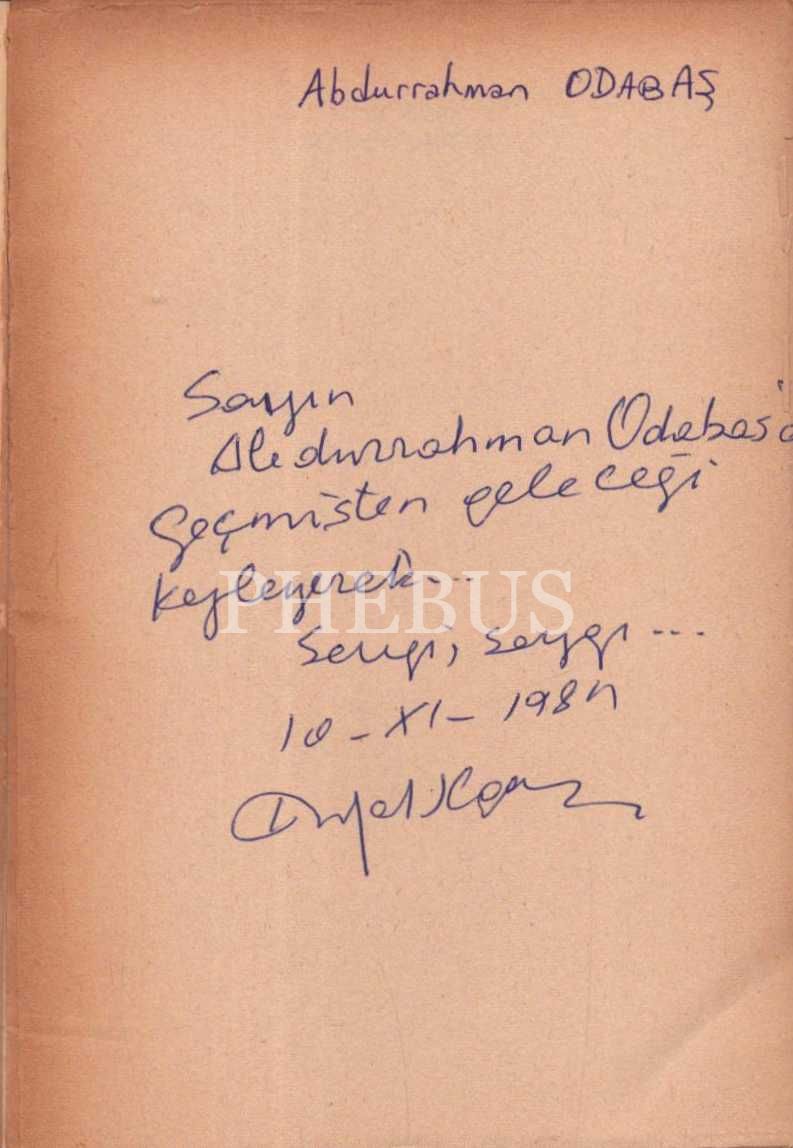 Abdurrahman ODABAŞ
Sayın
Abdurrahman Odabaş'a
Geçmişten geleceği
keşleyerek...
PHEBUS
Sevgi, saygı...
10-XI-1984